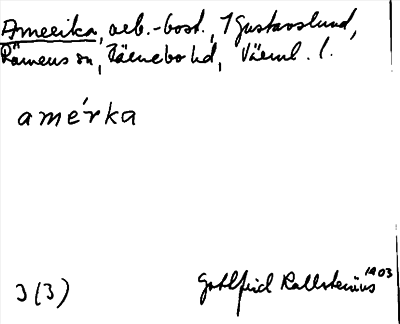 Amerika, arb.-bost., 1 Gustavslund,
Rämens sn, Färnebo hd, Värml. l.
amérka
3 (3) Gottfrid Kallstenius 1903